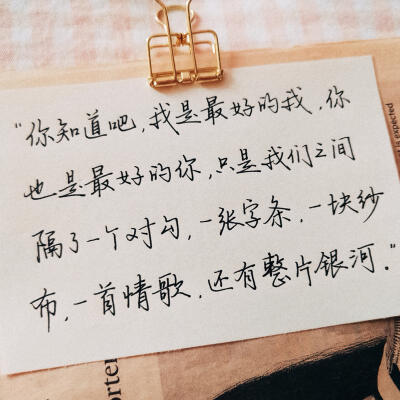 "你知道吧,我是最好的我,你
也是最好的你,只是我们之间
隔了一个对勾,一张字条,一块纱
布,一首情歌,还有整片银河."
is expected
orter